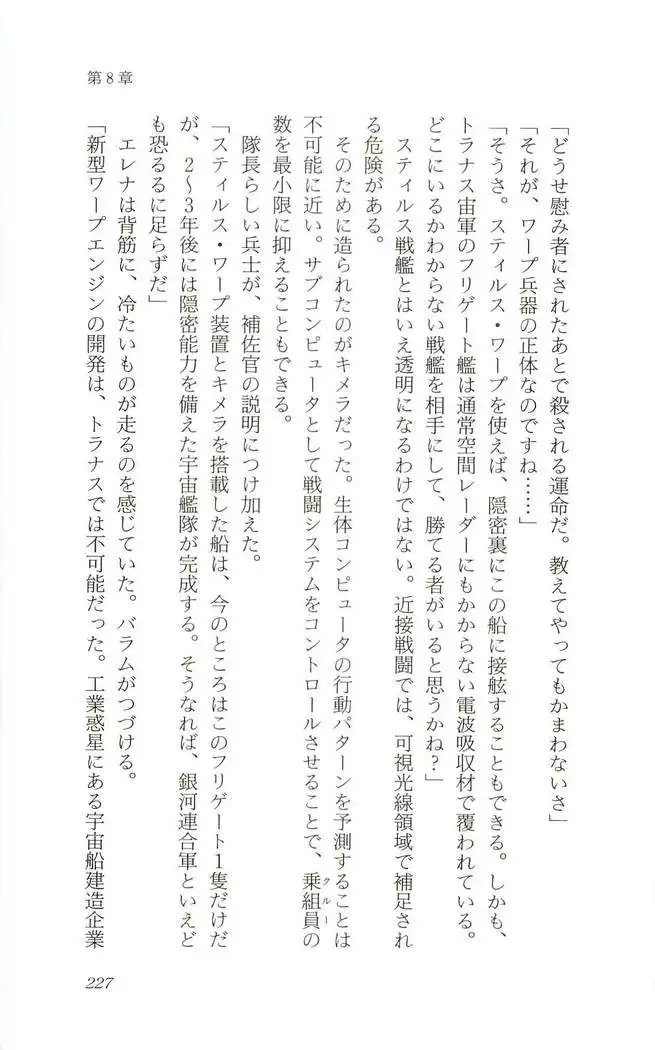 第8章
「どうせ慰み者にされたあとで殺される運命だ。教えてやってもかまわないさ」
「それが、ワープ兵器の正体なのですね……」
「そうさ。スティルス・ワープを使えば、隠密裏にこの船に接舷することもできる。しかも、
トラナス宙軍のフリゲート艦は通常空間レーダーにもかからない電波吸収材で覆われている。
どこにいるかわからない戦艦を相手にして、勝てる者がいると思うかね?」
スティルス戦艦とはいえ透明になるわけではない。近接戦闘では、可視光線領域で補足され
る危険がある。
そのために造られたのがキメラだった。生体コンピュータの行動パターンを予測することは
不可能に近い。サブコンピュータとして戦闘システムをコントロールさせることで、乗組員の
クルー
数を最小限に抑えることもできる。
隊長らしい兵士が、補佐官の説明につけ加えた。
「スティルス・ワープ装置とキメラを搭載した船は、今のところはこのフリゲート1隻だけだ
が、2〜3年後には隠密能力を備えた宇宙艦隊が完成する。そうなれば、銀河連合軍といえど
も恐るるに足らずだ」
エレナは背筋に、冷たいものが走るのを感じていた。バラムがつづける。
「新型ワープエンジンの開発は、トラナスでは不可能だった。工業惑星にある宇宙船建造企業
227